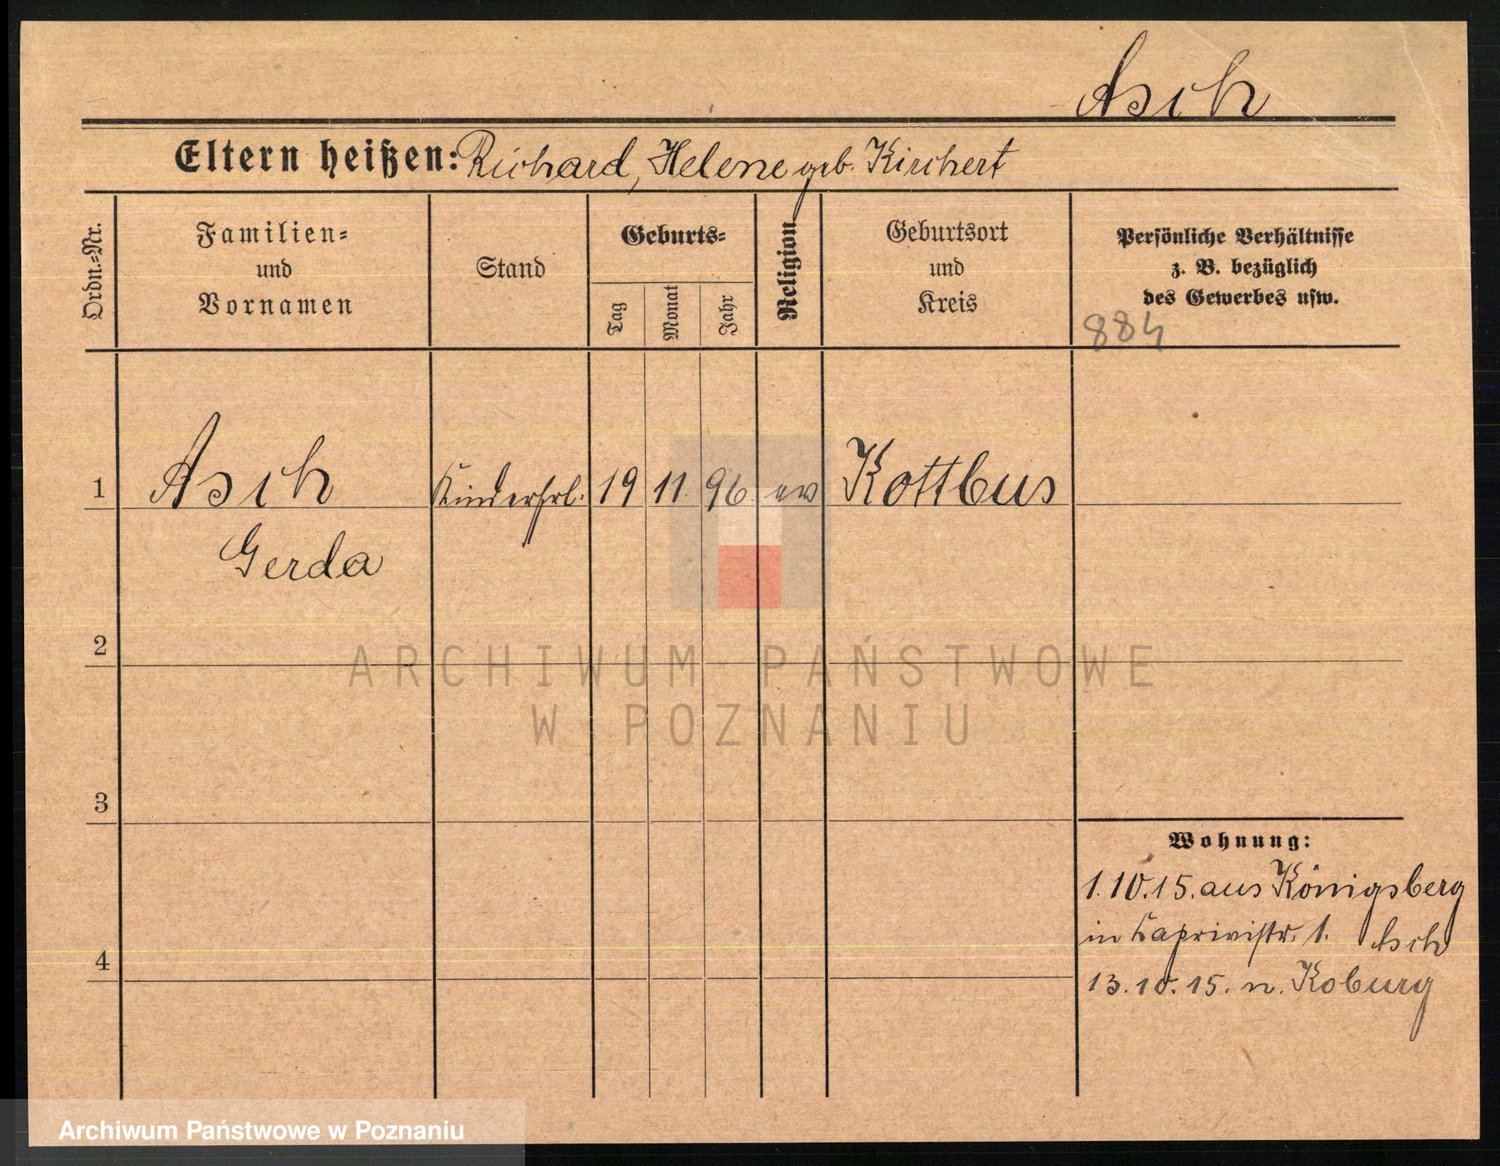 Asch
Eltern heißen: Richard, Helene geb. Kirchert
Ordn.-Nr.
Familien-
und
Vornamen
Stand
Geburts-
Tag
Monat
Jahr
Religion
Geburtsort
und
Kreis
Persönliche Verhältnisse
z. B. bezüglich
des Gewerbes usw.
884
1 Asch Kinderfrl. 19 11. 96. ev Kottbus
Gerda
2
ARCHIWUM PAŃSTWOWE
W POZNANIU
3
Wohnung:
1.10.15. aus Königsberg
in Kaprivistr. 1. Asch
4
13.10.15. n. Koburg
Archiwum Państwowe w Poznaniu